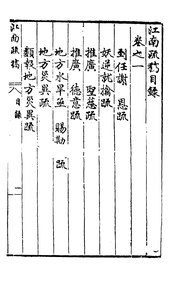 江南疏稿目錄
卷之一
到任謝 恩疏
妖逆就擒疏
推廣 聖慈疏
推廣 德意疏
地方水旱並 賜勘 疏
地方災異疏
類報地方災異疏
江南疏稿
目錄
一